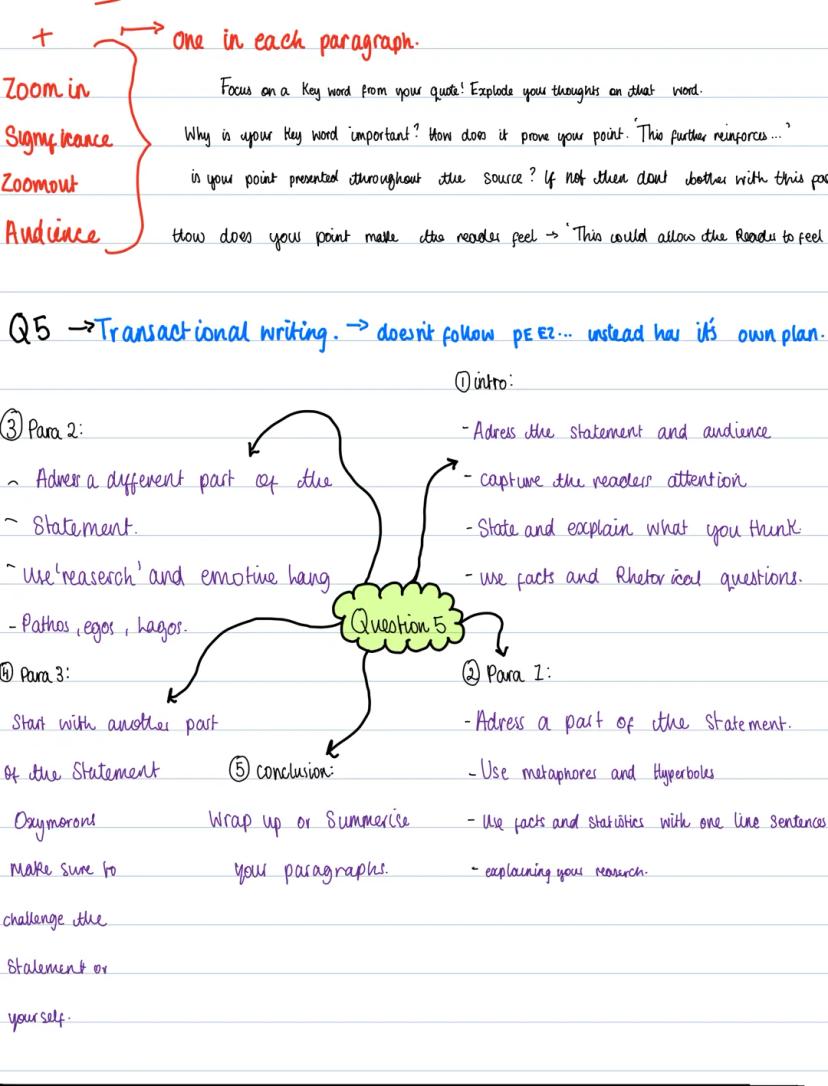 + → one in each paragraph.
Zoom in Focus on a key word from your quote! Explode your thoughts on that word.
Significance Why is your key word important? How does it prove your point. 'This further reinforces...'
Zoomout is your point presented throughout the source? If not then dont bother with this
Audience How does your point make the reader feel → 'This could allow the Reader to feel
Q5 → Transactional writing. → doesn't follow PEEZ... instead has it's own plan.
① intro:
- Adress the statement and audience
- capture the readers attention
- State and explain what you think.
- use facts and Rhetorical questions.
③ Para 2:
- Adress a different part of the
- Statement.
- Use 'reaserch' and emotive lang
- Pathos, egos, Lagos.
Question 5
④ Para 3:
Start with another part
of the Statement
Oxymorons
Make sure to
challenge the
Statement or
yourself.
⑤ conclusion:
Wrap up or Summerise
your paragraphs.
② Para 1:
- Adress a part of the Statement.
- Use metaphores and Hyperbols
- Use facts and statistics with one line sentences
- explaining your reaserch.